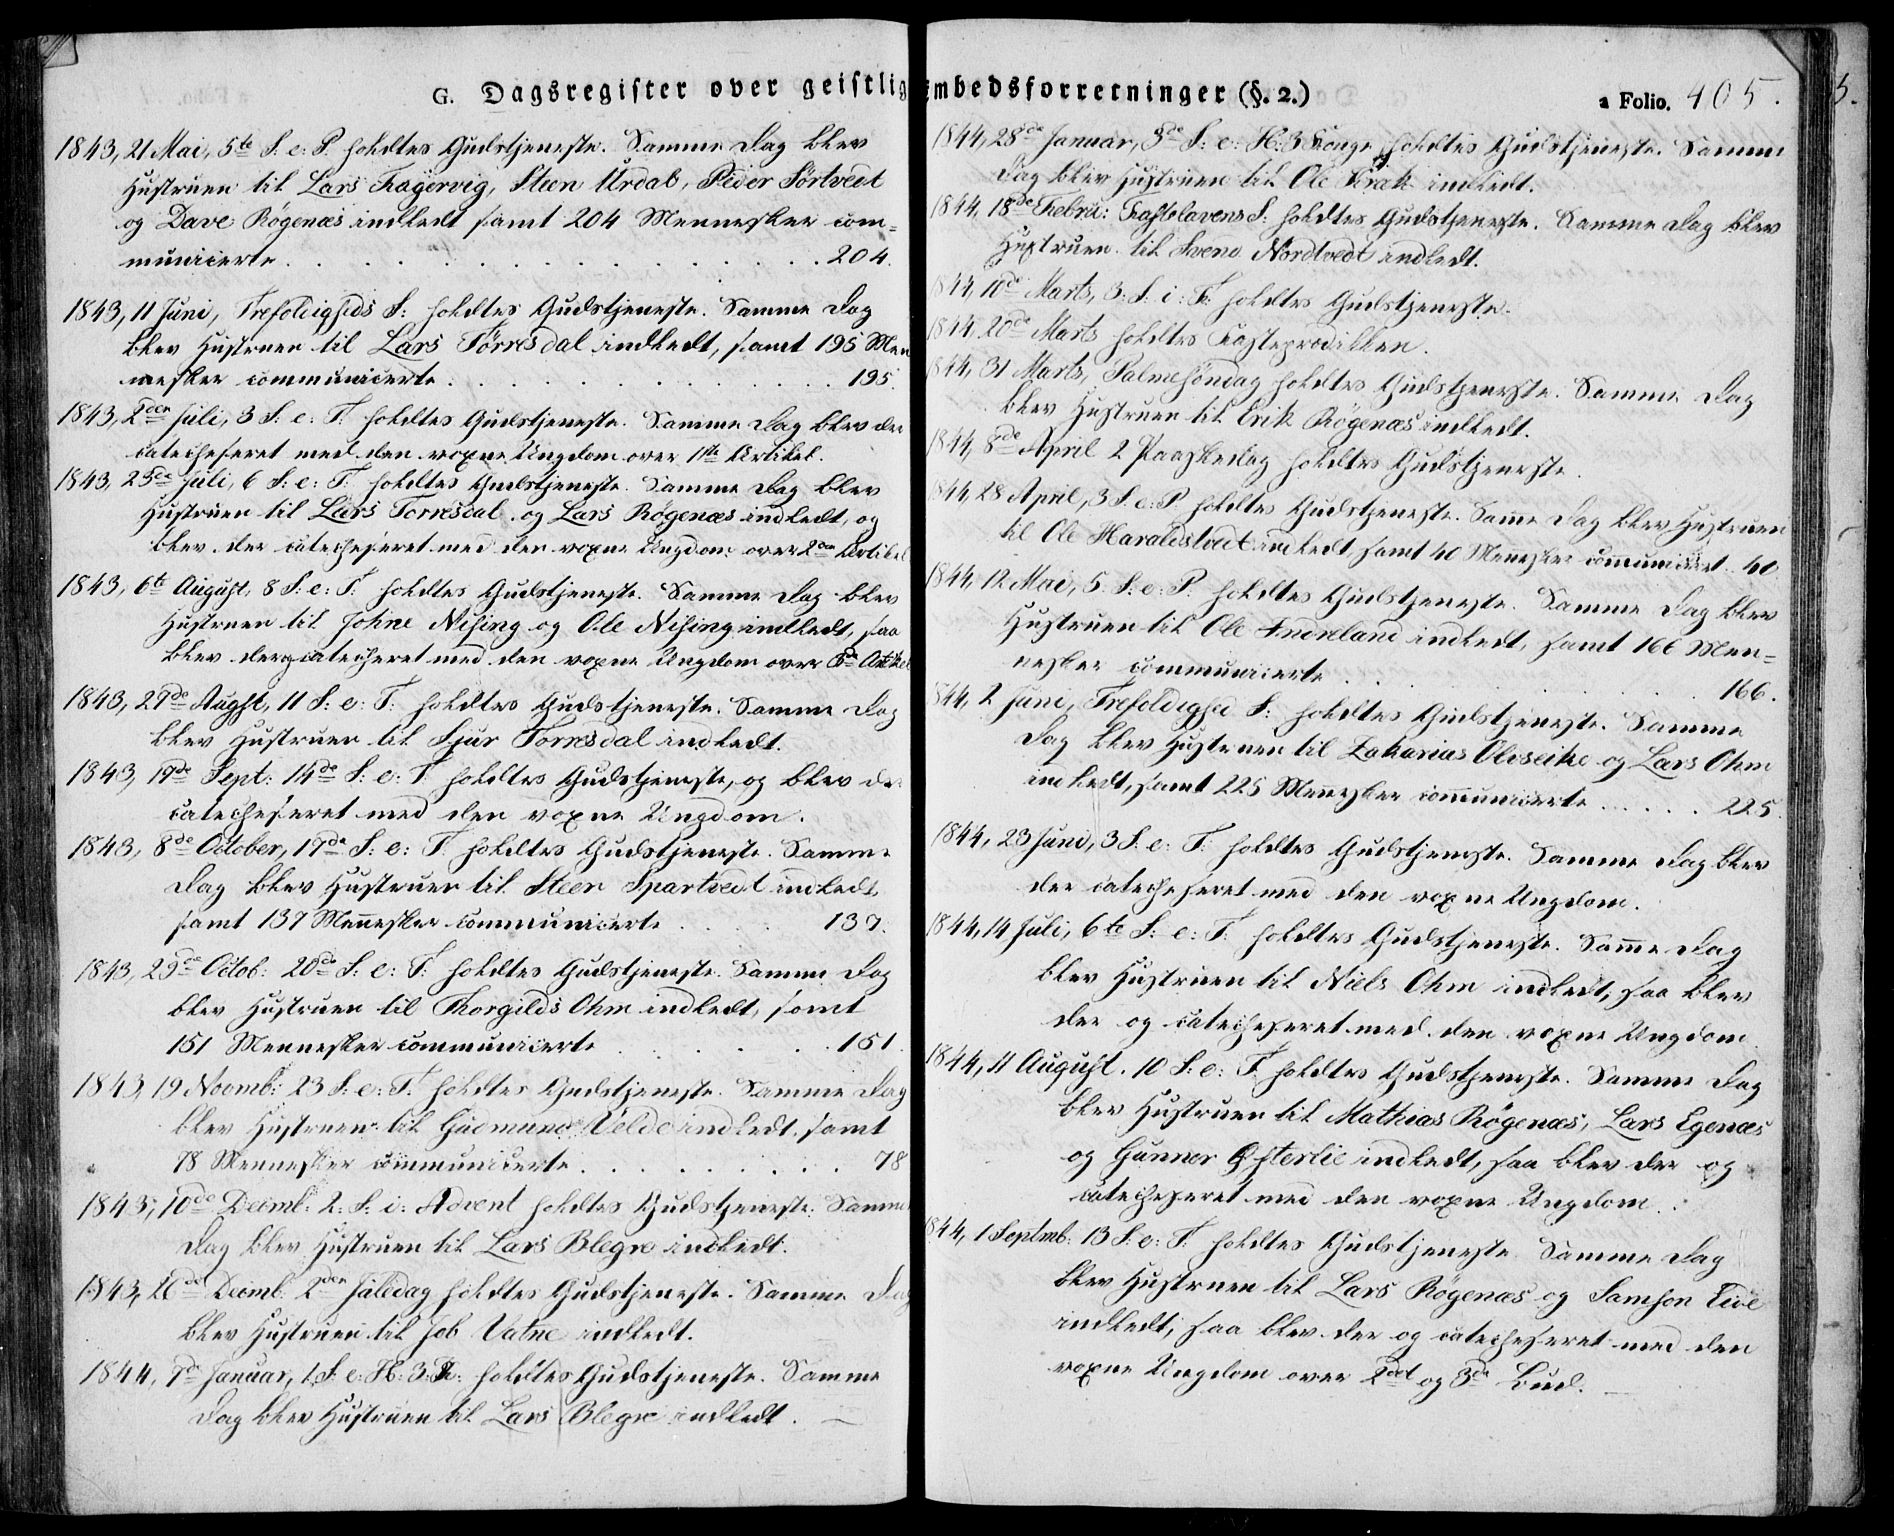 G. Dagsregister over geistlig Embedsforretninger (§. 2.)
a Folio. 405.
1843, 21 Mai, 5te S. e: P. holdtes Gudstjeneste. Samme Dag blev
Hustruen til Lars Fagervig, Steen Urdal, Peder Sørtvedt
og Dave Røgenæs indledt samt 204 Mennesker com=
municerte . . . 204.
1843, 11 Juni, Trefoldigheds S: holdtes Gudstjeneste. Samme Dag
blev Hustruen til Lars Tørresdal indledt, samt 195 Men
nesker communicerte . . . 195.
1843, 2den Juli, 3 S. e: T. holdtes Gudstjeneste. Samme Dag blev der
catecheseret med den voxne Ungdom over 1ste Artikel.
1843, 23de Juli, 6 S: e: T. holdtes Gudstjeneste. Samme Dag blev
Hustruen til Lars Torresdal og Lars Røgenæs indledt, og
blev der catecheseret med den voxne Ungdom over 2den Artikel
1843, 6te August, 8 S: e: T. holdtes Gudstjeneste. Samme Dag blev
Hustruen til Johne Nising og Ole Nising indledt, saa
blev der catecheseret med den voxne Ungdom over 3de Artikel
1843, 27de Augst, 11 S: e: T: holdtes Gudstjeneste. Samme Dag
blev Hustruen til Sjur Torresdal indledt.
1843, 17de Sept: 14de S: e: T. holdtes Gudstjeneste, og blev der
catecheseret med den voxne Ungdom.
1843, 8de October, 17de S: e: T. holdtes Gudstjeneste. Samme
Dag blev Hustruen til Steen Spartvedt indledt,
samt 137 Mennesker communicerte . . . 137.
1843, 29de Octob: 20de S: e: T: holdtes Gudstjeneste. Samme Dag
blev Hustruen til Thorgilds Ohm indledt, samt
151 Mennesker communicerte . . . 151.
1843, 19 Novmb: 23 S: e: T. holdtes Gudstjeneste. Samme Dag
blev Hustruen til Gudmund Velde indledt, samt
78 Mennesker communicerte . . . 78
1843, 10de Decmb: 2. S: i: Advent holdtes Gudstjeneste. Samme
Dag blev Hustruen til Lars Blegre indledt.
1843, 26de Decmb. 2den Juledag holdtes Gudstjeneste. Samme Dag
blev Hustruen til Job Vatne indledt.
1844, 7de Januar, 1 S: e: H: 3. K: holdtes Gudstjeneste. Samme
Dag blev Hustruen til Lars Blegre indledt.
1844, 28de Januar, 3de S: e: H: 3 Konge holdtes Gudstjeneste. Samme
Dag blev Hustruen til Ole indledt.
1844, 18de Febru: Fastelavens S: holdtes Gudstjeneste. Samme Dag blev
Hustruen til Svend Nordtvedt indledt.
1844, 10de Marts, 3: S: i: F: holdtes Gudstjeneste.
1844. 20de Marts holdtes Fasteprædikken.
1844, 31 Marts, Palmesøndag holdtes Gudstjeneste. Samme Dag
blev Hustruen til Erik Røgenæs indledt.
1844, 8de April 2 Paaskedag holdtes Gudstjeneste.
1844, 28 April, 3 S. e: P. holdtes Gudstjeneste. Same Dag blev Hustruen
til Ole Haraldstvedt indledt, samt 40 Menesker comunicert . 40
1844, 12 Mai, 5 S: e: P. holdtes Gudstjeneste. Samme Dag blev
Hustruen til Ole Indreland indledt, samt 166 Men=
nesker communicerte . . . 166.
1844, 2 Juni, Trefoldighed S: holdtes Gudstjeneste. Samme
Dag blev Hustruen til Zakarias Olvseike og Lars Ohm
indledt, samt 225 Menesker communicerte . . . 225.
1844, 23 Juni, 3 S. e: T. holdtes Gudstjeneste. Samme Dag blev
der catecheseret med den voxne Ungdom.
1844, 14 Juli, 6te S: e: T: holdtes Gudstjeneste. Same Dag
blev Hustruen til Niels Ohm indledt, saa blev
der og catecheseret med den voxne Ungdom
1844, 11 August. 10 S: e: T. holdtes Gudstjeneste. Samme Dag
blev Hustruen til Mathias Røgenæs, Lars Egenæs
og Gunner Østerlie indledt, saa blev der og
catecheseret med den voxne Ungdom.
1844, 1 Septmb: 13 S: e: T. holdtes Gudstjeneste. Samme Dag
blev Hustruen til Lars Røgenæs og Samson Eide
indledt, saa blev der og catecheseret med den
voxne Ungdom over 2det og 3de Bud.